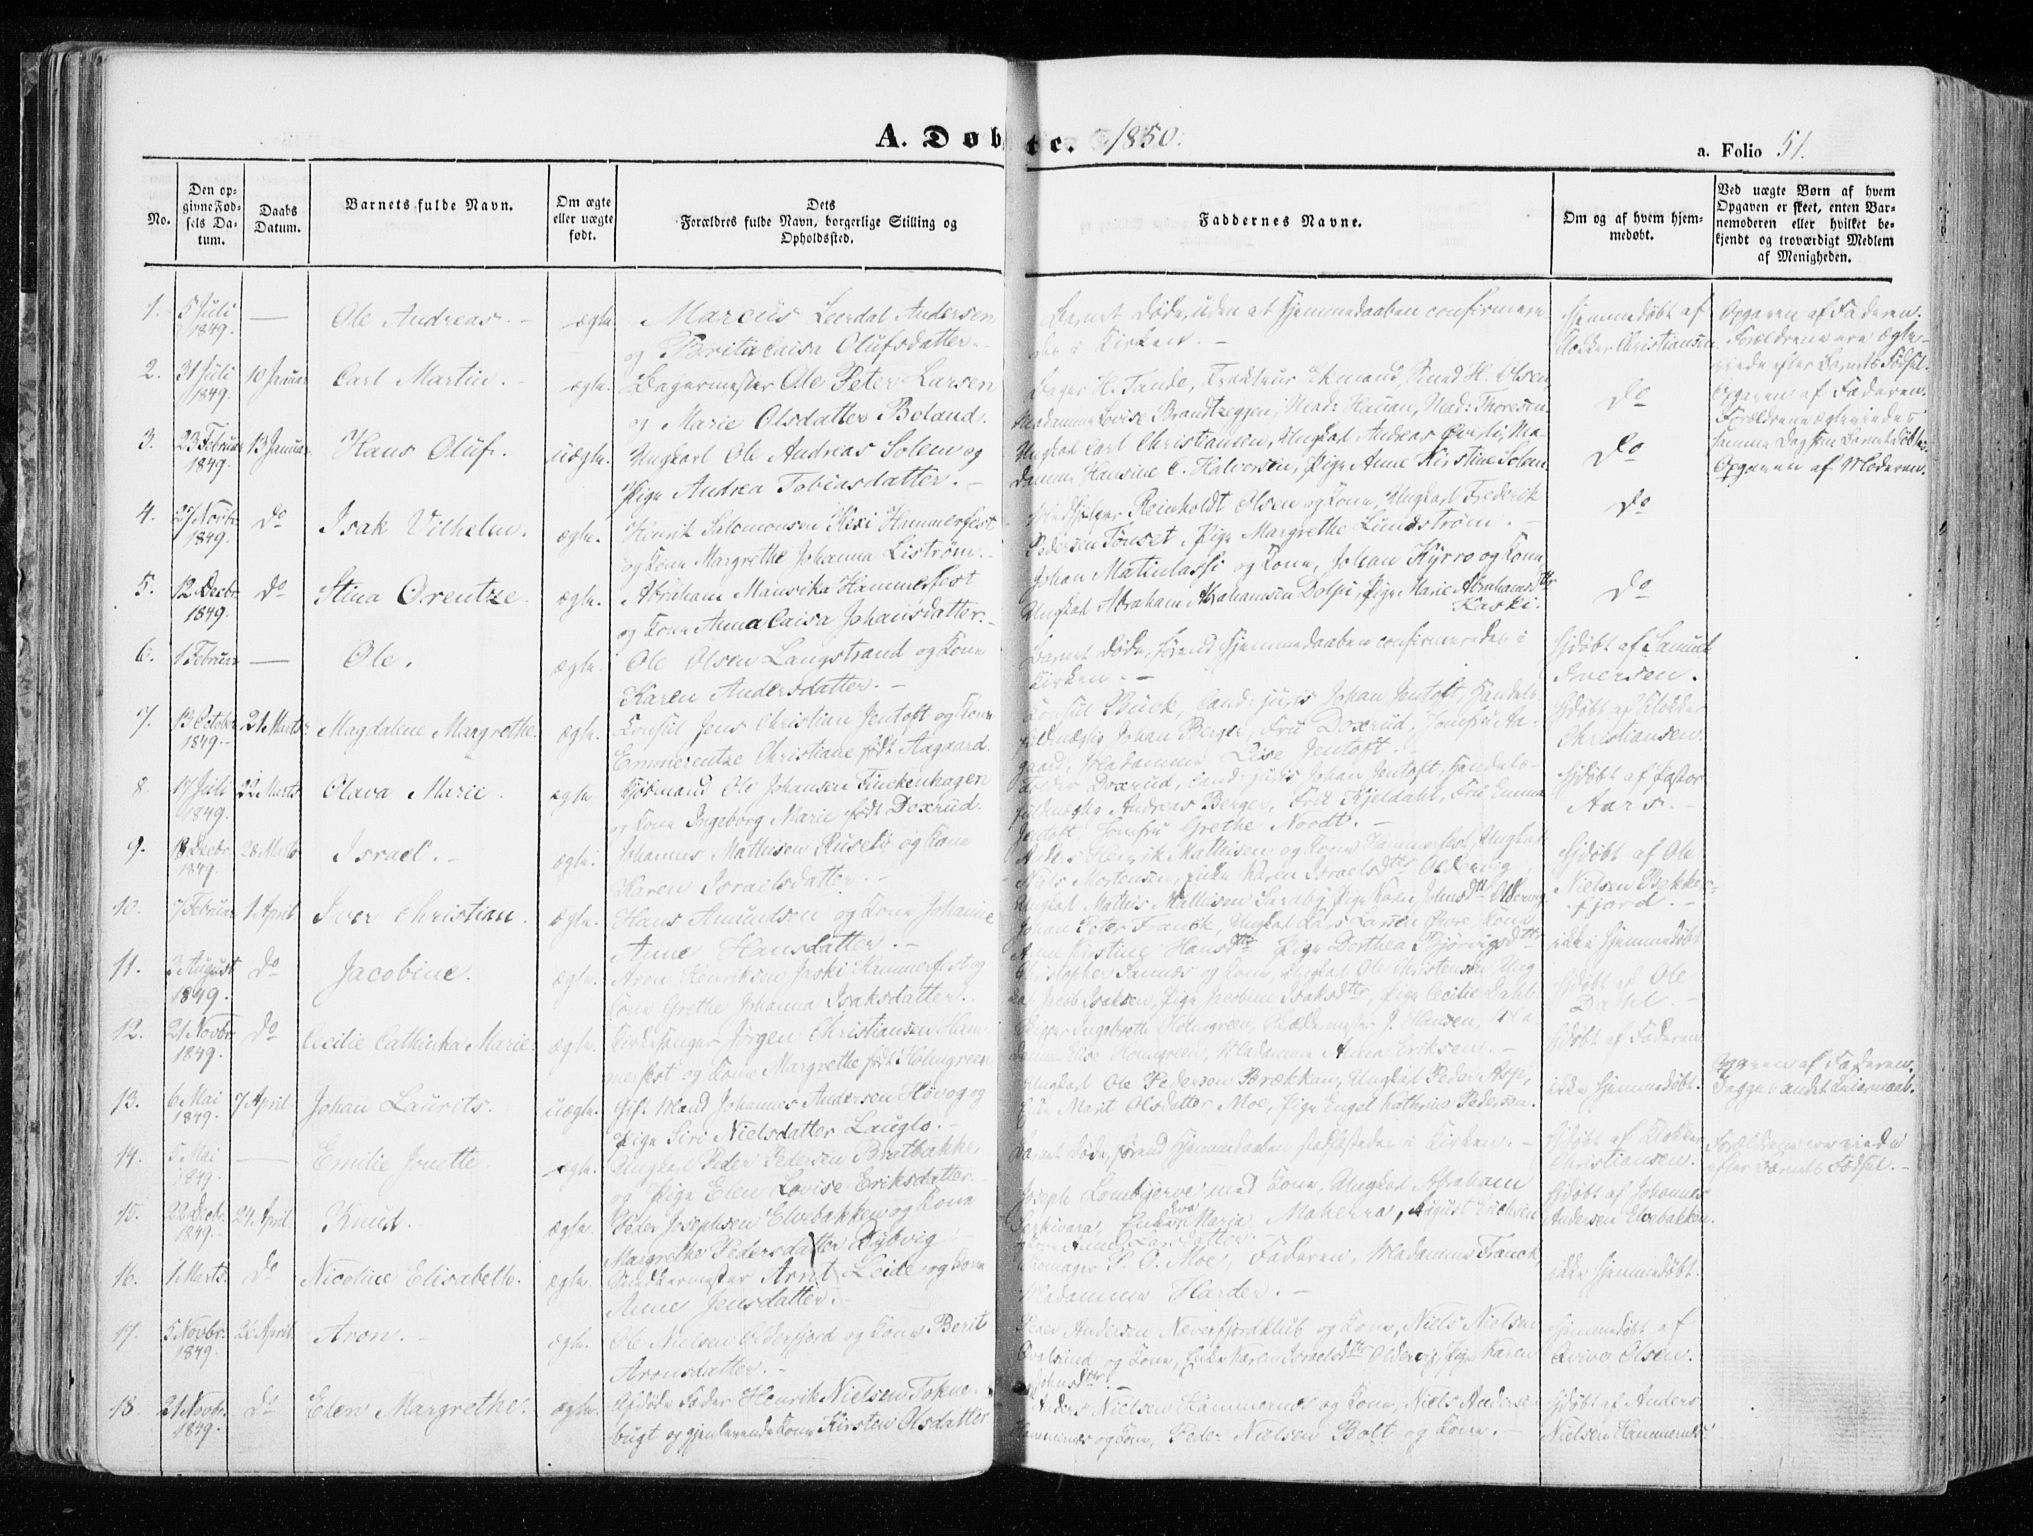 A. Døbte. 1850.
a. Folio 51.
No.
Den op-
givne Fød-
sels Da-
tum.
Daabs
Datum.
Barnets fulde Navn.
Om ægte
eller uægte
født.
Dets
Forældres fulde Navn, borgerlige Stilling og
Opholdssted.
Faddernes Navne.
Om og af hvem hjem-
medøbt.
Ved uægte Børn af hvem
Opgaven er skeet, enten Bar-
nemoderen eller hvilket be-
kjendt og troværdigt Medlem
af Menigheden.
1. 5 Juli 1849. — Ole Andreas. — ægte. Marcus Leerdal Andersen
og Berita Caisa Olufsdatter. —
Barnet døde, uden at Hjemmedaaben confirmere
des i Kirken. —
Hjemmedøbt af
Klokker Christiansen.
Opgaven af Faderen.
Forældrene ere ægte-
viede efter Barnets Fødsel.
2. 31 Juli 1849. 10 Januar Carl Martin. — ægte. Bagermester Ole Peter Larsen
og Marie Olsdatter Boland.
Bager H. Tande, Ekmand, Smed H. Olsen,
Madamme Lovise Brandtzeggen, Mad: Hauan, Mad: Thoresen.
Do
Opgaven af Faderen.
Forældrene ægteviedes
samme Dag som Barnet døbtes.
3. 23 Februar 1849. 13 Januar Hans Oluf. uægte. Ungkarl Ole Andreas Solem og
Pige Andrea Tobiasdatter. —
Ungkarl Carl Christiansen, Ungkarl Andreas Ma-
damme Hansine C. Halvorsen, Pige Anne Kirstine Solem.
Do
Opgaven af Moderen.
4. 27 Novbr. 1849. Do Isak Vilhelm. ægte. Henrik Salomonsen Kexi Hammerfest
og Kone Margrethe Johanna Liström. —
Reinholdt Olsen og Kone, Ungkarl Frederik
Pedersen Tönset, Pige Margrethe Lundström. —
Do
5. 12 Decbr. 1849. Do Stina Orentze. ægte. Abraham Mansika Hammerfest
og Kone Anna Caisa Johansdatter. —
Johan Matinlassi og Kone, Johan Kyrro og Kone
Ungkarl Abraham Abrahamsen Dolpi, Pige Marie Abrahamsdtr
Kaski.
Do
6. 1 Februar — Ole. ægte. Ole Olsen Langstrand og Kone
Karen Andersdatter. —
Barnet døde, førend Hjemmedaaben confirmeredes i
Kirken. —
Hjdøbt af Samuel
Iversen.
7. 13 October 1849. 21 Marts Magdalene Margrethe. ægte. Consul Jens Christian Jentoft og Kone
Emmerentze Christiane født Aagaard.
Consul Buck, Cand: juris Johan Jentoft, Handels-
fuldmægtig Johan Berger, Fru Doxrud, Jomfru Aa-
gaard, Madamme Lise Jentoft. —
Hjdøbt af Klokker
Christiansen.
8. 17 Juli 1849. 22 Marts Olava Marie. ægte Kjøbmand Ole Johansen Finckenhagen
og Kone Ingeborg Marie født Doxrud.
Doxrud, Cand: juris Johan Jentoft, Handels-
fuldmægtig Andreas Berger, Fru Kjeldahl, Fru Emma
Jentoft Jomfru Grethe Nordt. —
Hjdøbt af Pastor
Aars. —
9. 18 Decbr. 1849. 28 Marts Israel. — ægte. Johannes Mathisen og Kone
Karen Israelsdatter. —
Anders Henrik Mathisen og Kone Hammerfest, Ungkarl
Niels Mortensen, Enke Karen Israelsdtr Oldervig,
Ungkarl Mathis Mathisen Saraby, Pige Karen Johnsdtr Oldervig.
Hjdøbt af Ole
Nielsen Bekker-
fjord. —
10. 7 Februar 1. April Iver Christian. ægte. Hans Amundsen og Kone Johanne
Anne Hansdatter. —
Johan Peter Franck, Ungkarl Lars Larsen Kone
Ane Kirstine Hansdtr, Pige Dorthea
ikke hjemmedøbt
11. 3 August 1849. Do Jacobine. ægte. Aron Henriksen Jaski Hammerfest og
Kone Grethe Johanna Isaksdatter.
Christopher Sannes og Kone, Ungkarl Ole Christensen, Ung-
karl Jacob Isaksen, Pige Jacobine Isaksdtr, Pige Cecilie Dahl.
Hjdøbt af Ole
Dahl. —
12. 21 Novbr. 1849. Do Cecilie Cathinka Marie. ægte. Kirkesanger Jørgen Christiansen Ham-
merfest og Kone Margrethe født Holmgreen
Skipper Ingebreth Holmgreen, J. Hansen, Ma-
damme Elise Holmgreen, Madamme Anna Eriksen. —
Hjdøbt af Faderen
13. 6 Mai 1849. 7 April Johan Laurits. uægte. Gift Mand Johannes Andersen Høvog og
Pige Siri Nielsdatter Lauglo. —
Ungkarl Ole Pedersen Brækkan, Ungkarl Peder Asp,
Enke Marit Olsdatter Moe, Pige Engel Kathrine Pedersen.
ikke hjemmedøbt.
Opgaven af Faderen.
Begges andet Leiermaal.
14. 5 Mai 1849. — Emilie Jonette. ægte. Ungkarl Peder Pedersen Bratbakke
og Pige Elen Lovise Eriksdatter. —
Barnet døde, førend Hjemmedaaben stadfæstedes i Kirken. —
Hjdøbt af Klokker
Christiansen.
Forældrene ere viede
efter Barnets Fødsel. —
15. 22 Decbr. 1849. 24. April Knud. — ægte. Peder Josephsen Elvebakken og Kone
Margrethe Pedersdatter Dybvig —
Joseph Lombjerve med Kone, Ungkarl Abraham
Serkivara, Enke Eva Maria Maherra, August Erichsen
Hjdøbt af Johannes
Andersen Elvebakken.
16. 1 Marts. Do Nicoline Elisabeth. ægte. Snedkermester Arnt Leide og Kone
Anne Jensdatter. —
P. O. Moe, Faderen, Madamme Franck,
Madamme Harder. —
ikke hjemmedøbt.
17. 5 Novbr. 1849. 26 April Aron. — ægte. Ole Nielsen Olderfjord og Kone Berit
Aronsdatter. —
Peder Andersen Neverfjordklub og Kone, Niels Nielsen
Kvalsund og Kone, Enke Karen Israelsdtr Oldervig, Pige Karen
Johnsdtr. —
Hjemmedøbt af
Olsen.
18 21 Novbr. 1849. Do Elen Margrethe. ægte. Afdøde Fader Henrik Nielsen Tokne-
bugt og gjenlevende Kone Kirsten Olsdatter
Anders Nielsen Hammernes og Kone, Niels Andersen
Hammernes og Kone, Peder Nielsen Bolt og Kone. —
Hjdøbt af Anders
Nielsen Hammernes